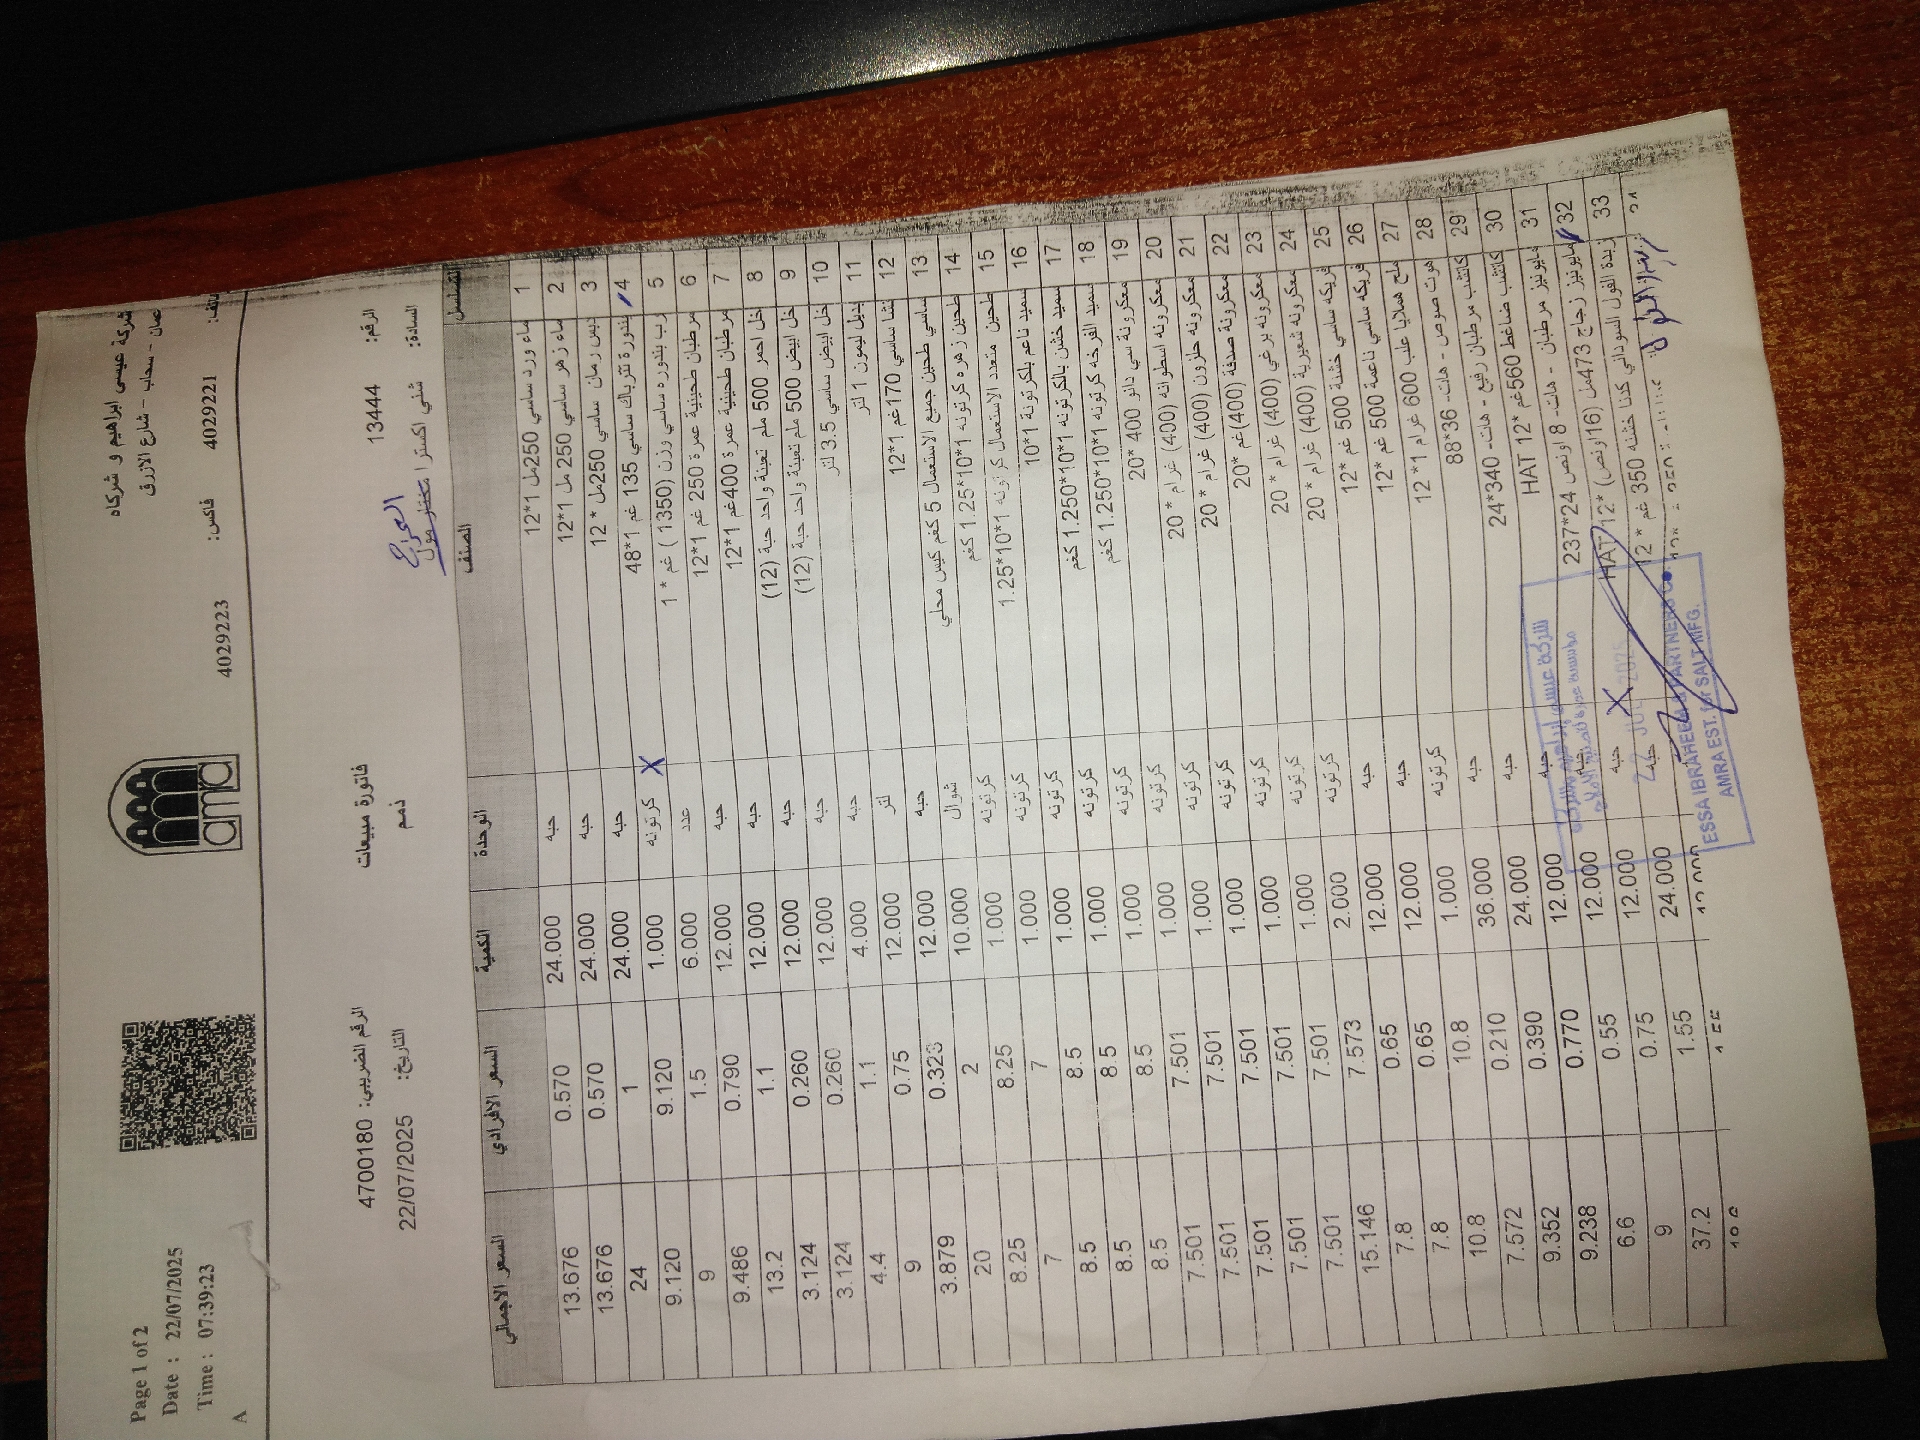 Page 1 of 2
Date : 22/07/2025
Time : 07:39:23
A
amra
شركة عيسى ابراهيم و شركاه
عمان - سحاب - شارع الازرق
هاتف: 4029221 فاكس: 4029223
فاتورة مبيعات
ذمم
الرقم: 13444
الرقم الضريبي: 4700180
التاريخ: 22/07/2025
السادة: شني اكسترا مختار مول
التسلسل الصنف الوحدة الكمية السعر الافرادي السعر الاجمالي
1 ماء ورد ساسي 250مل 1*12 حبه 24.000 0.570 13.676
2 ماء زهر ساسي 250 مل 1*12 حبه 24.000 0.570 13.676
3 دبس رمان ساسي 250مل * 12 حبه 24.000 1 24
4 بندورة تتراباك ساسي 135 غم 1*48 كرتونه 1.000 9.120 9.120
5 رب بندوره ساسي وزن (1350) غم * 1 عدد 6.000 1.5 9
6 مرطبان طحينية عمرة 250 غم 1*12 حبه 12.000 0.790 9.486
7 مرطبان طحينية عمرة 400غم 1*12 حبه 12.000 1.1 13.2
8 خل احمر 500 ملم تعبئة واحد حبة (12) حبه 12.000 0.260 3.124
9 خل ابيض 500 ملم تعبئة واحد حبة (12) حبه 12.000 0.260 3.124
10 خل ابيض ساسي 3.5 لتر حبه 4.000 1.1 4.4
11 بديل ليمون 1 لتر لتر 12.000 0.75 9
12 نشا ساسي 170غم 1*12 حبه 12.000 0.323 3.879
13 ساسي طحين جميع الاستعمال 5 كغم كيس محلي شوال 10.000 2 20
14 طحين زهره كرتونه 1*10*1.25 كغم كرتونه 1.000 8.25 8.25
15 طحين متعدد الاستعمال كرتونه 1*10*1.25 كرتونه 1.000 7 7
16 سميد ناعم بلكرتونة 1*10 كرتونه 1.000 8.5 8.5
17 سميد خشن بالكرتونه 1*10*1.250 كغم كرتونه 1.000 8.5 8.5
18 سميد الفرخه كرتونه 1*10*1.250 كغم كرتونه 1.000 8.5 8.5
19 معكرونة سي دانو 400 *20 كرتونه 1.000 7.501 7.501
20 معكرونه اسطوانه (400) غرام * 20 كرتونه 1.000 7.501 7.501
21 معكرونه حلزون (400) غرام * 20 كرتونه 1.000 7.501 7.501
22 معكرونة صدفة (400)غم * 20 كرتونه 1.000 7.501 7.501
23 معكرونه برغي (400) غرام * 20 كرتونه 1.000 7.501 7.501
24 معكرونه شعيرية (400) غرام * 20 كرتونه 2.000 7.573 15.146
25 فريكه ساسي خشنة 500 غم *12 حبه 12.000 0.65 7.8
26 فريكه ساسي ناعمة 500 غم *12 حبه 12.000 0.65 7.8
27 ملح هملايا علب 600 غرام 1*12 كرتونه 1.000 10.8 10.8
28 هوت صوص - هات- 36*88 حبه 36.000 0.210 7.572
29 كاتشب مرطبان رفيع - هات- 340*24 حبه 24.000 0.390 9.352
30 كاتشب ضاغط 560غم *12 HAT حبه 12.000 0.770 9.238
31 مايونيز مرطبان - هات- 8 اونص 24*237 حبه 12.000 0.55 6.6
32 مايونيز زجاج 473مل (16اونص) *12 HAT حبه 12.000 0.75 9
33 زبدة الفول السوداني كدنا خشنه 350 غم * 12 حبه 24.000 1.55 37.2
شركة عيسى ابراهيم وشركاه
22 JUL 2025
ESSA IBRAHEEM & PARTNERS Co.
AMRA EST. for SALT MFG.